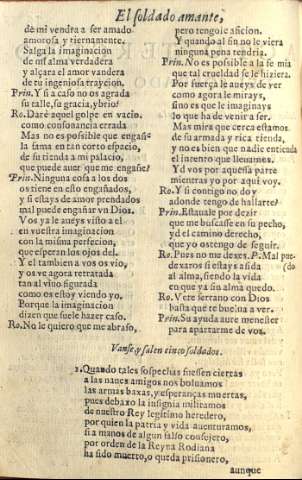 El soldado amante,
de mi vendra a ser amado
amorosa y tiernamente.
Salga la imaginacion
de mi alma verdadera
y alçara el amor vandera
de tu ingeniosa trayçion.
Prin. Y si a caso no os agrada
su talle, su gracia, y brio?
Ro. Daré aquel golpe en vacio.
como consonancia errada
Mas no es possible que engañe
la fama en tan corto espacio,
de su tienda a mi palacio,
que puede auer que me engañe?
Prin. Ninguna cosa a los dos
os tiene en esto engañados,
y si estays de amor prendados
mal puede engañar vn Dios.
Vos ya le aueys visto a el
en vuestra imaginacion
con la misma perfecion,
que esperan los ojos del.
Y el tambien a vos os vio,
y os ve agora retratada
tan al viuo figurada
como es estoy viendo yo,
Porque la imaginacion
dizen que suele hazer caso.
Ro. No le quiero que me abraso,
pero tengole aficion.
Y quando al fin no le viera
ninguna pena tendria.
Prin. No es possible a la fe mia
que tal crueldad se le hiziera.
Por fuerça le aueys de ver
como agora le mirays,
sino es que le imaginays
lo que ha de venir a ser.
Mas mira que cerca estamos
de su armada y rica tienda,
y no es bien que nadie entienda
el intento que lleuamos.
Yd vos por aquessa parte
mientras yo por aqui voy.
Ro. Y si contigo no doy
adonde tengo de hallarte?
Prin. Estauale por dezir
que me buscasse en su pecho,
yd el camino derecho,
que yo os tengo de seguir.
Ro. Pues no me dexes. P. Mal pue-
dexaros si estays asida (do
al alma, siendo la vida
en que ya sin alma quedo.
Ro. Vete serrano con Dios
basta que te buelua a ver.
Prin. Su ayuda aure menester
para apartarme de vos.
Vanse, y salen cinco soldados.
1. Quando tales sospechas fuessen ciertas
a las naues amigos nos boluamos
las armas baxas, y esperanças muertas,
pues debaxo la insignia militamos
de nuestro Rey legitimo heredero,
por quien la patria y vida auenturamos,
si a manos de algun falso consejero,
por orden de la Reyna Rodiana
ha sido muerto, o queda prisionero,
aunque